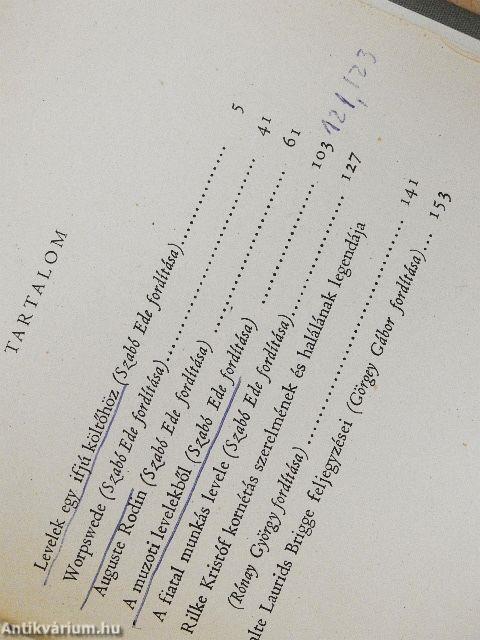 TARTALOM
Levelek egy ifjú költőhöz (Szabó Ede fordítása) .......... 5
Worpswede (Szabó Ede fordítása) .......... 41
Auguste Rodin (Szabó Ede fordítása) .......... 61
A muzoti levelekből (Szabó Ede fordítása) .......... 103 121, 123
A fiatal munkás levele (Szabó Ede fordítása) .......... 127
Rilke Kristóf kornétás szerelmének és halálának legendája
(Rónay György fordítása) .......... 141
alte Laurids Brigge feljegyzései (Görgey Gábor fordítása) ... 153
Antikvárium.hu